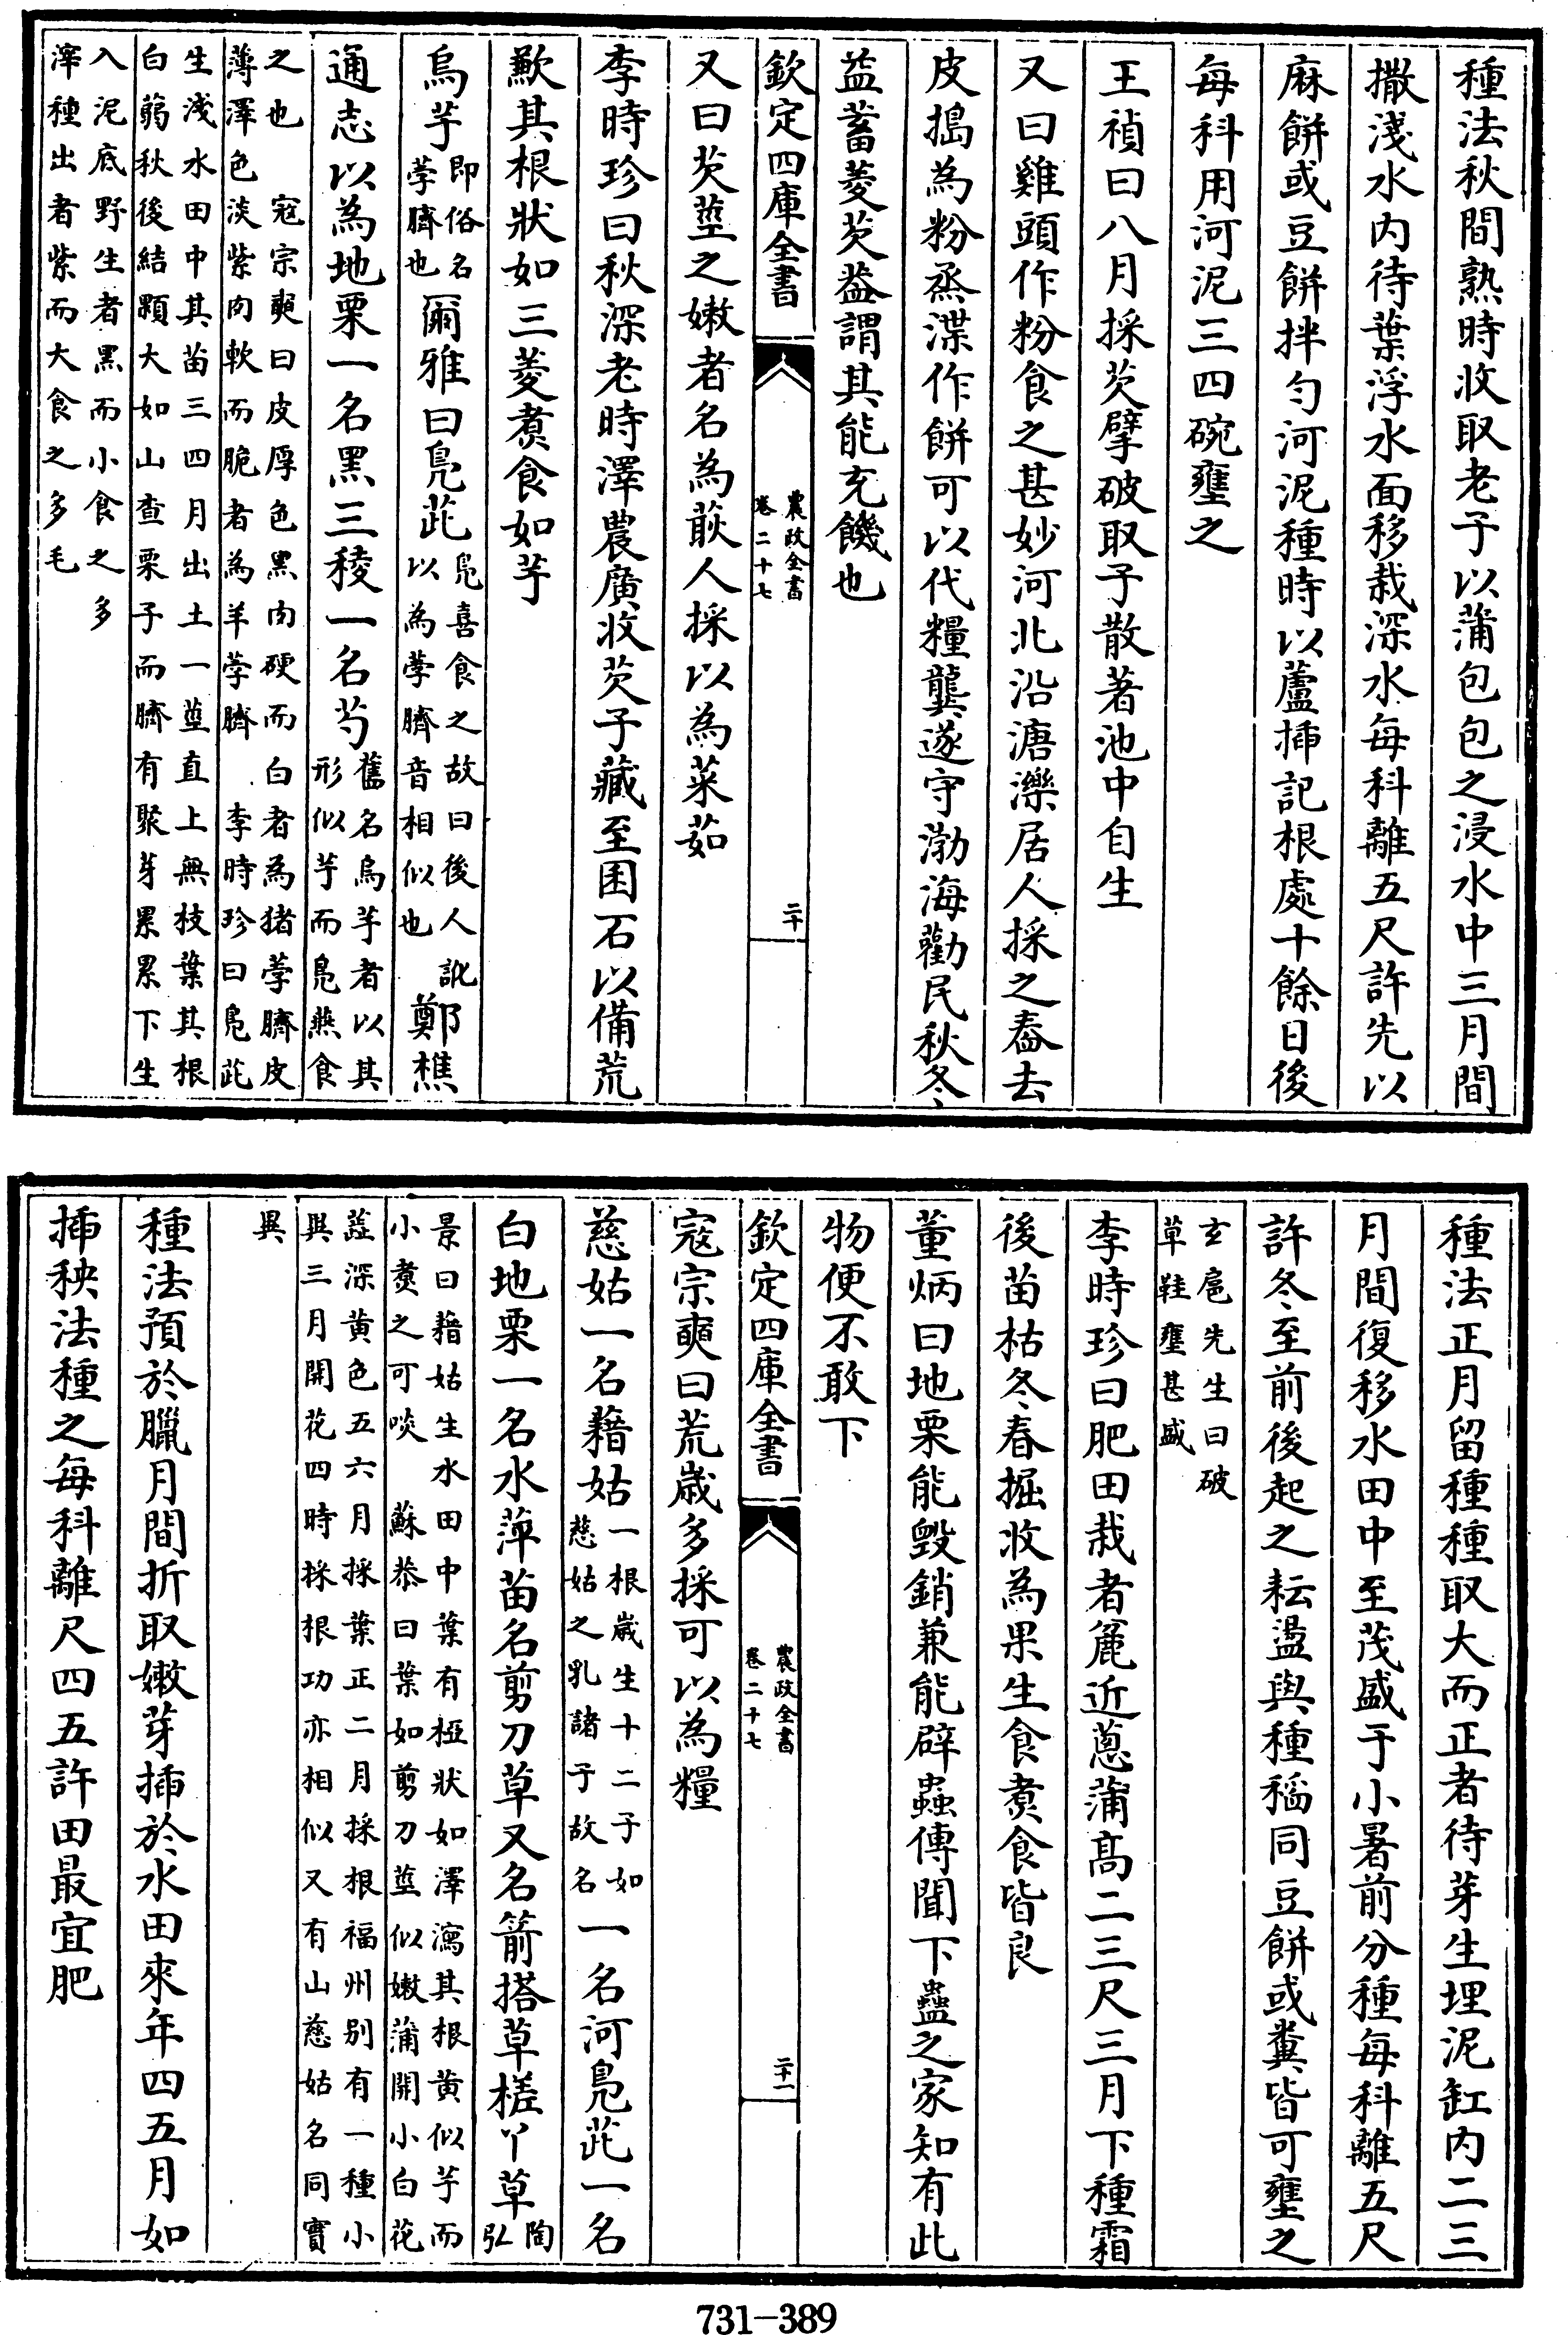 種法秋間熟時收取老子以蒲包包之浸水中三月間
撒淺水内待葉浮水面移栽深水每科離五尺許先以
麻餅或豆餅拌匀河泥種時以蘆揷記根處十餘日後
每科用河泥三四碗壅之
王禎曰八月採芡擘破取子散著池中自生
又曰雞頭作粉食之甚妙河北沿溏濼居人採之舂去
皮搗為粉烝渫作餅可以代糧龔遂守渤海勸民秋冬
益蓄菱芡葢謂其能充饑也
欽定四庫全書
農政全書
卷二十七
二十
又曰芡莖之嫩者名為蒛人採以為菜茹
李時珍曰秋深老時澤農廣收芡子藏至囷石以備荒
歉其根狀如三菱煑食如芋
烏芋即俗名
葧臍也爾雅曰鳧茈鳧喜食之故曰後人訛
以為葧臍音相似也鄭樵
通志以為地栗一名黑三稜一名芍舊名烏芋者以其
形似芋而鳧燕食
之也 寇宗奭曰皮厚色黑肉硬而白者為猪葧臍皮
薄澤色淡紫肉軟而脆者為羊葧臍 李時珍曰鳧茈
生淺水田中其苗三四月出土一莖直上無枝葉其根
白蒻秋後結顆大如山查栗子而臍有聚芽累累下生
入泥底野生者黑而小食之多
滓種出者紫而大食之多毛
種法正月留種種取大而正者待芽生埋泥缸内二三
月間復移水田中至茂盛于小暑前分種每科離五尺
許冬至前後起之耘盪與種稻同豆餅或糞皆可壅之
玄扈先生曰破
草鞋壅甚盛
李時珍曰肥田栽者麄近蔥蒲高二三尺三月下種霜
後苗枯冬春掘收為果生食煑食皆良
董炳曰地栗能毁銷兼能辟蟲傳聞下蠱之家知有此
物便不敢下
欽定四庫全書
農政全書
卷二十七
二十一
寇宗奭曰荒歲多採可以為糧
慈姑一名藉姑一根歲生十二子如
慈姑之乳諸子故名一名河鳧茈一名
白地栗一名水萍苗名剪刀草又名箭搭草槎丫草陶
弘
景曰藉姑生水田中葉有椏狀如澤瀉其根黄似芋而
小煑之可啖 蘇恭曰葉如剪刀莖似嫩蒲開小白花
蘂深黄色五六月採葉正二月採根福州别有一種小
異三月開花四時採根功亦相似又有山慈姑名同實
異
種法預於臘月間折取嫩芽揷於水田來年四五月如
揷秧法種之每科離尺四五許田最宜肥
731-389